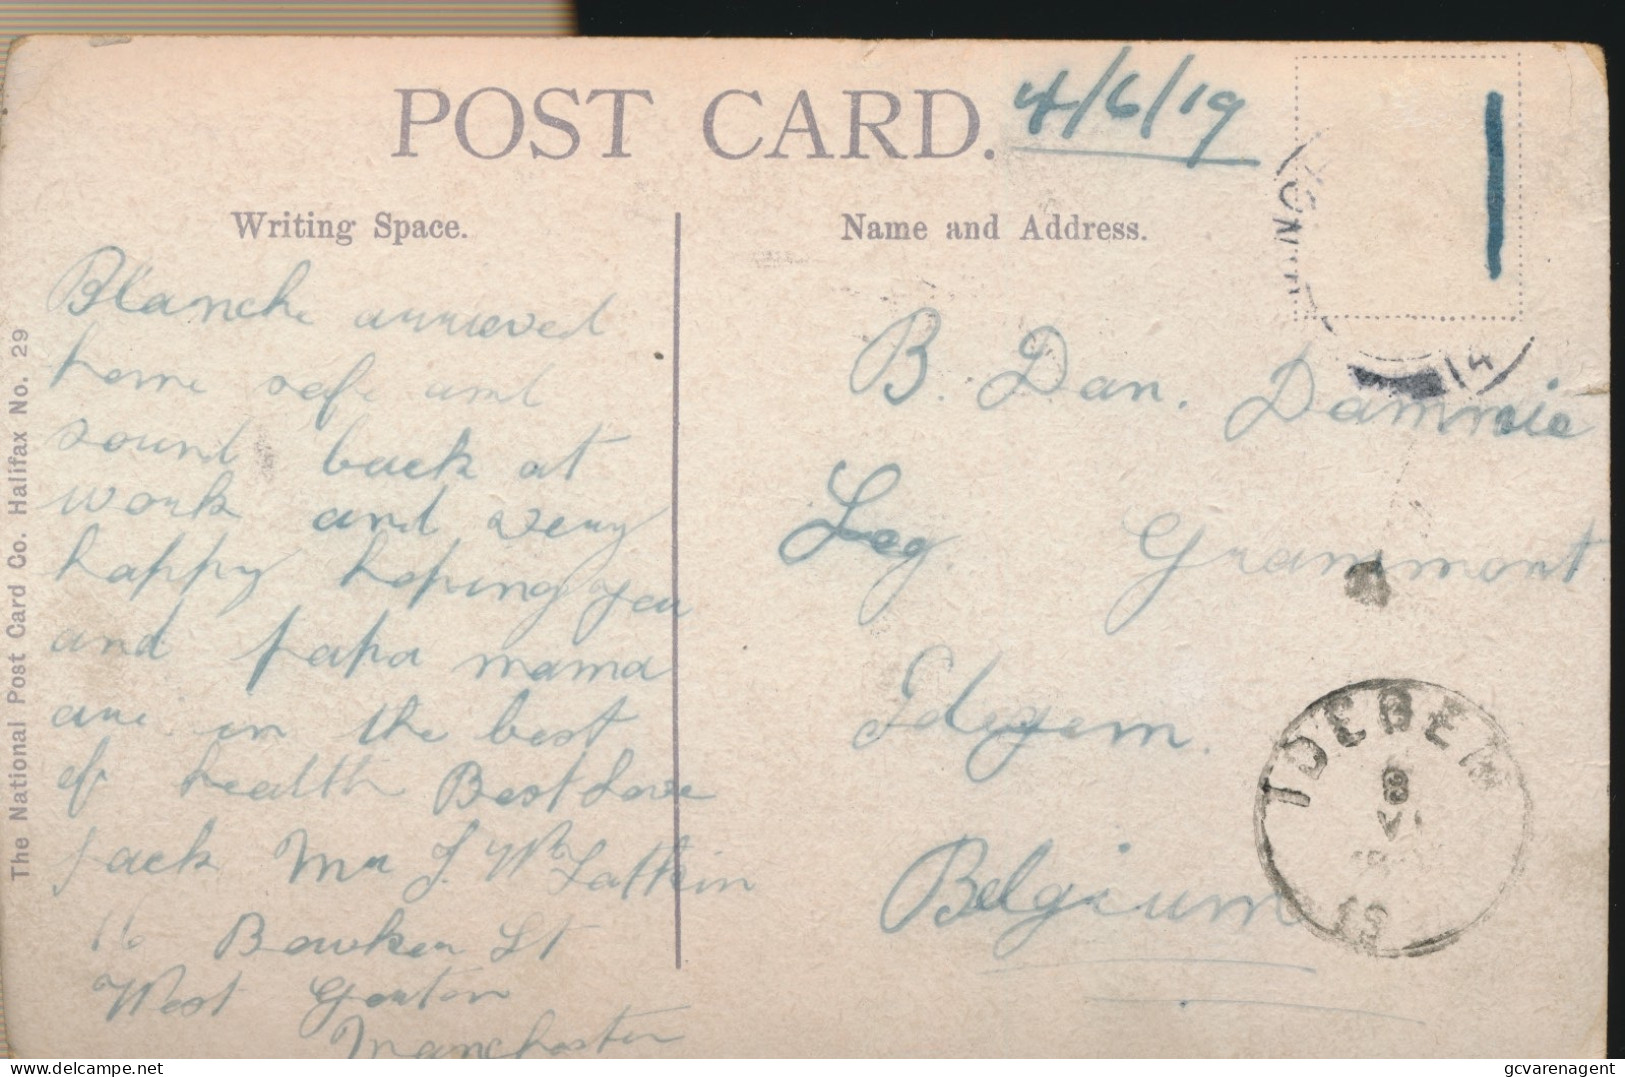 POST CARD. 4/6/19
Writing Space.
Blanche arrieved
home safe and
sound back at
work and very
happy hoping you
and papa mama
are in the best
of health Best Love
Jack Mr J. W.
16 Bowker St
West Gorton
Manchester
Name and Address.
B. Dan. Dammie
Leg Grammont
Idegem.
Belgium
IDEGEM
8
VI
19
14
The National Post Card Co. Halifax No. 29
gcvarenagent